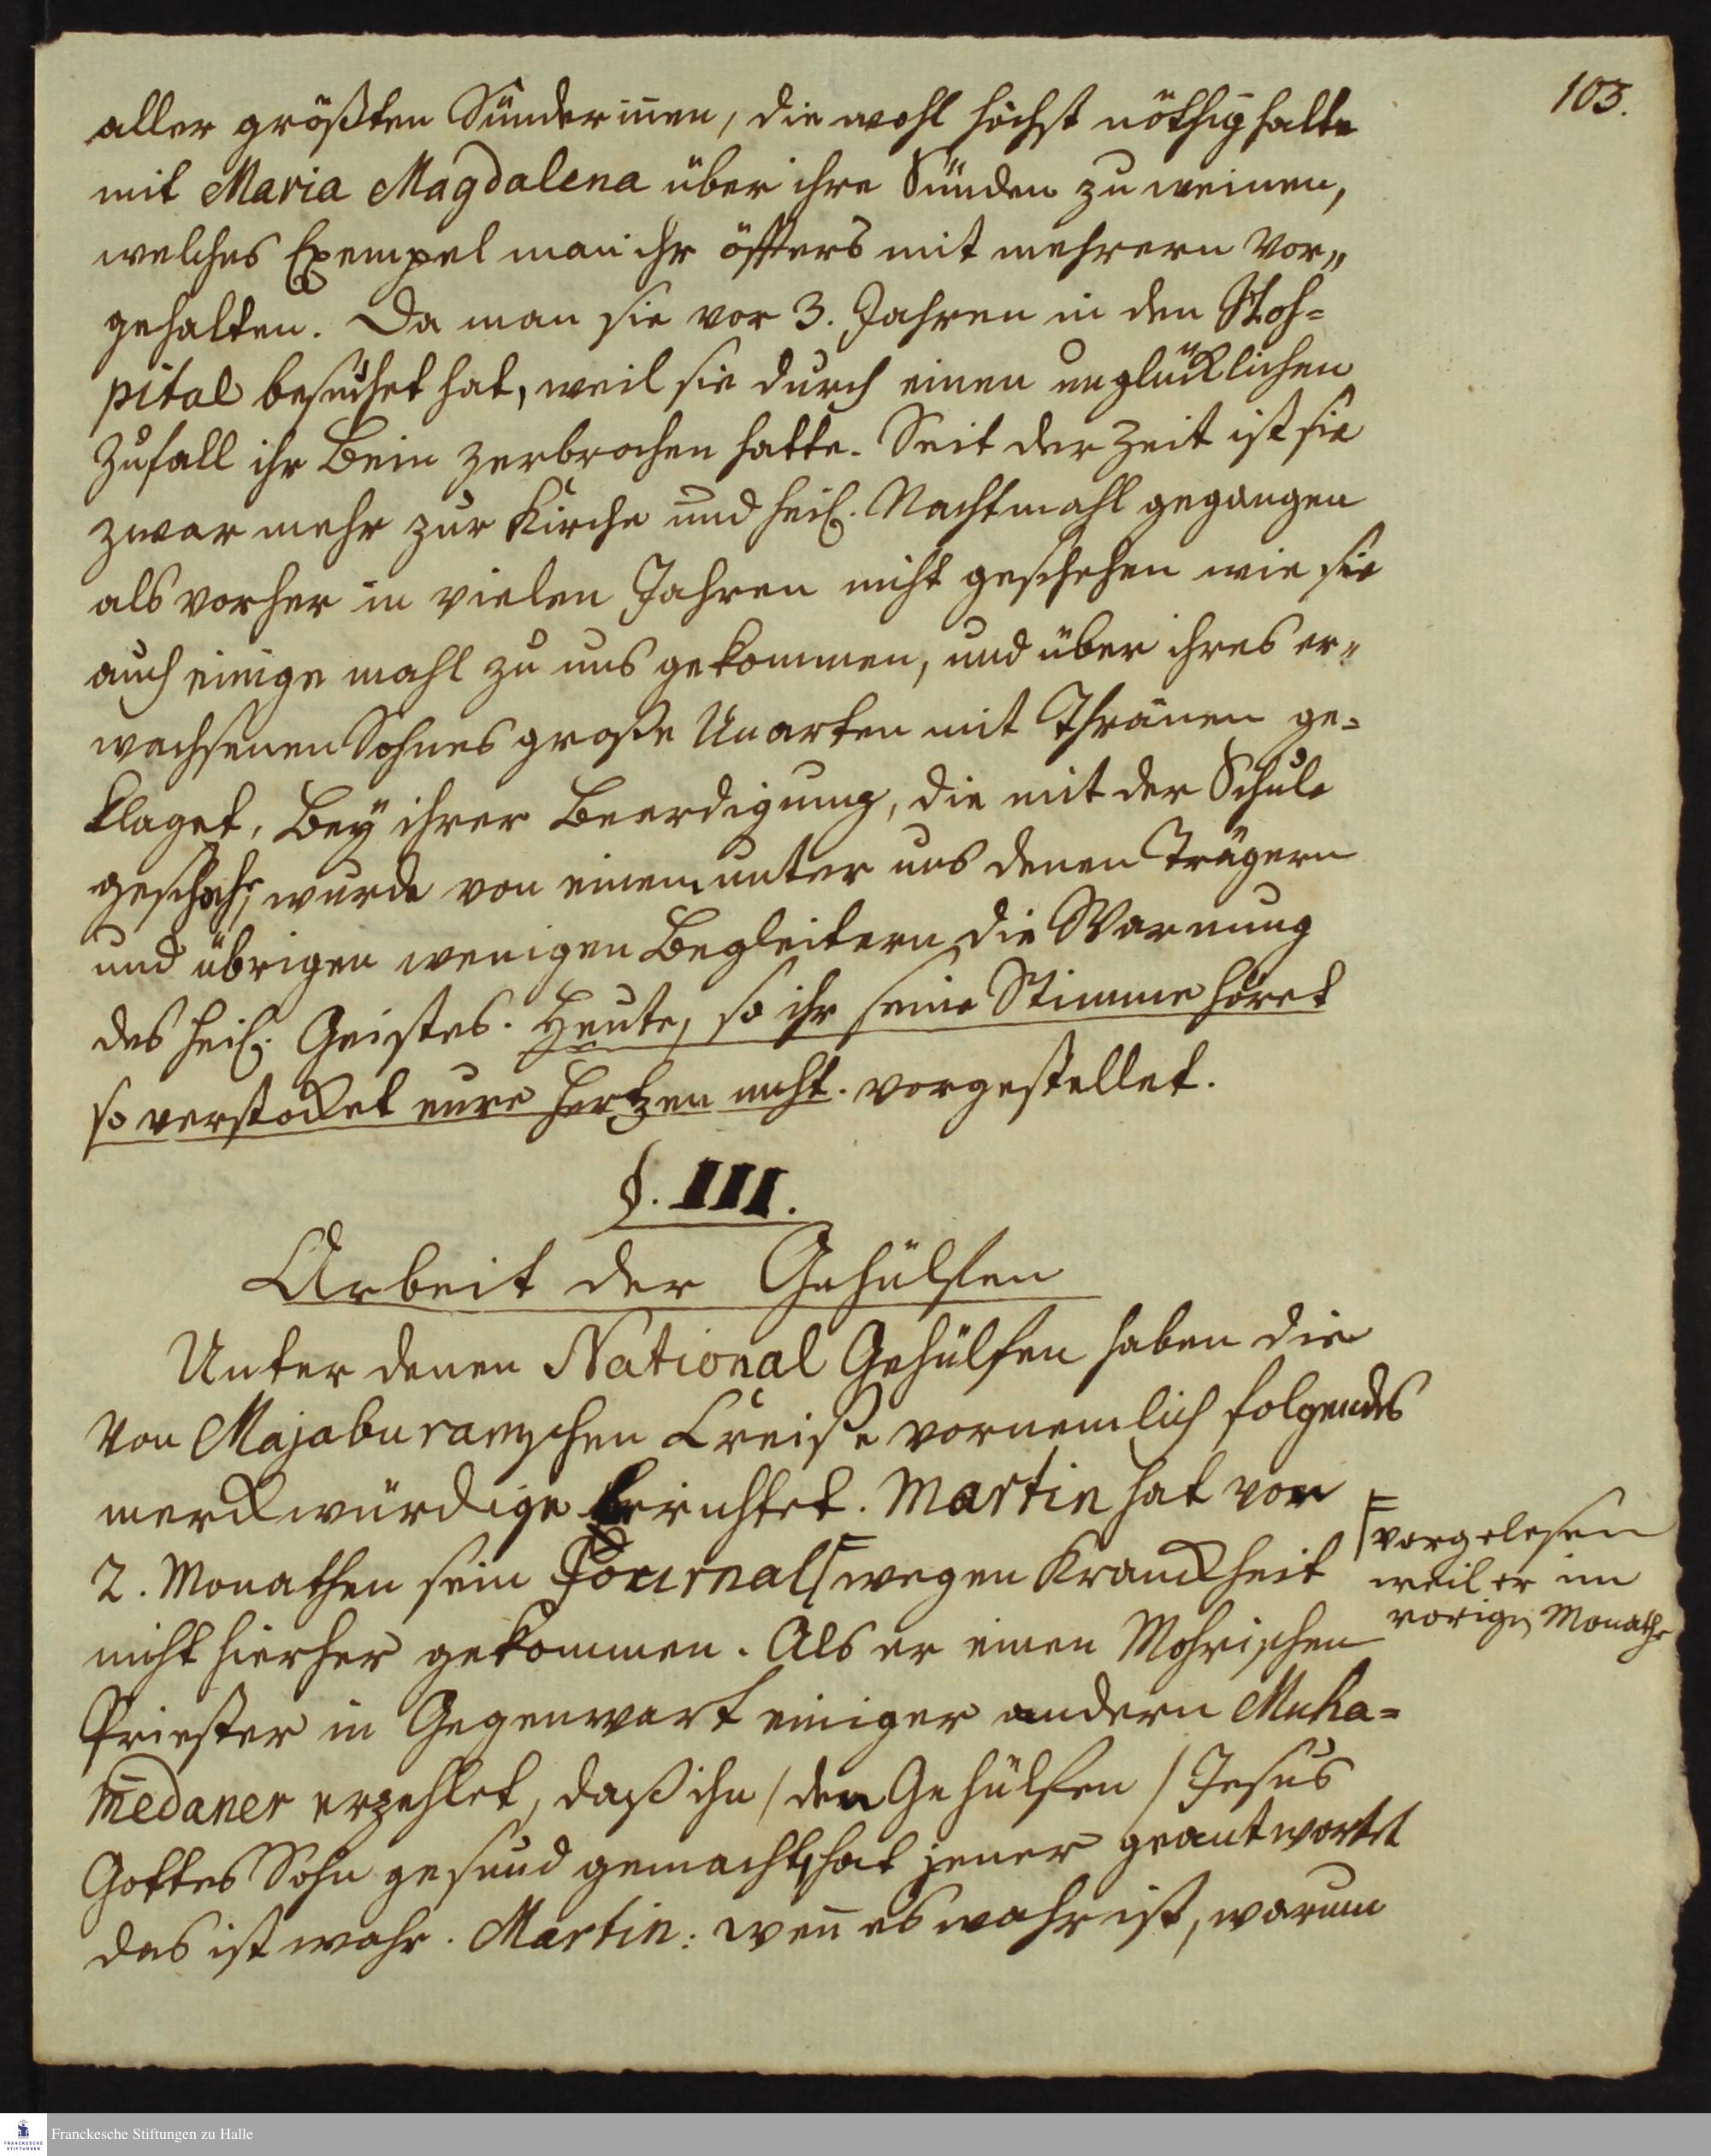 103.
aller größten Sünderinnen, die wohl höchst nöthig hatte
mit Maria Magdalena über ihre Sünden zu weinen,
welches Exempel man ihr öffters mit mehrern vor„
gehalten. Da man sie vor 3. Jahren in den Hos=
pital besuchet hat, weil sie durch einen unglücklichen
Zufall ihr Bein zerbrochen hatte. Seit der Zeit ist sie
zwar mehr zur Kirche und heil. Nachtmahl gegangen
als vorher in vielen Jahren nicht geschehen wie sie
auch einige mahl zu uns gekommen, und über ihres er„
wachsenen Sohnes große Unarten mit Thränen ge=
klaget. Bey ihrer Beerdigung, die mit der Schule
geschahe, wurde von einem unter uns denen Trägern
und übrigen wenigen Begleitern die Warnung
des heil. Geistes. Heute, so ihr seine Stimme höret
so verstocket eure Hertzen nicht. vorgestellet.
§. III.
Arbeit der Gehülfen
Unter denen National Gehülfen haben die
von Majaburamschen Creiße vornemlich folgendes
merckwürdige berichtet. Martin hat vor
2. Monathen sein Journal wegen Kranckheit
vorgelesen
weil er im
vorigen Monathe
nicht hierher gekommen. Als er einen Mohrischen
Priester in Gegenwart einiger andern Muha=
medaner erzehlet, daß ihn / den Gehülfen / Jesus
Gottes Sohn gesund gemacht, hat jener geantwortet
das ist wahr. Martin: wen̄ es wahr ist, warum
Franckesche Stiftungen zu Halle